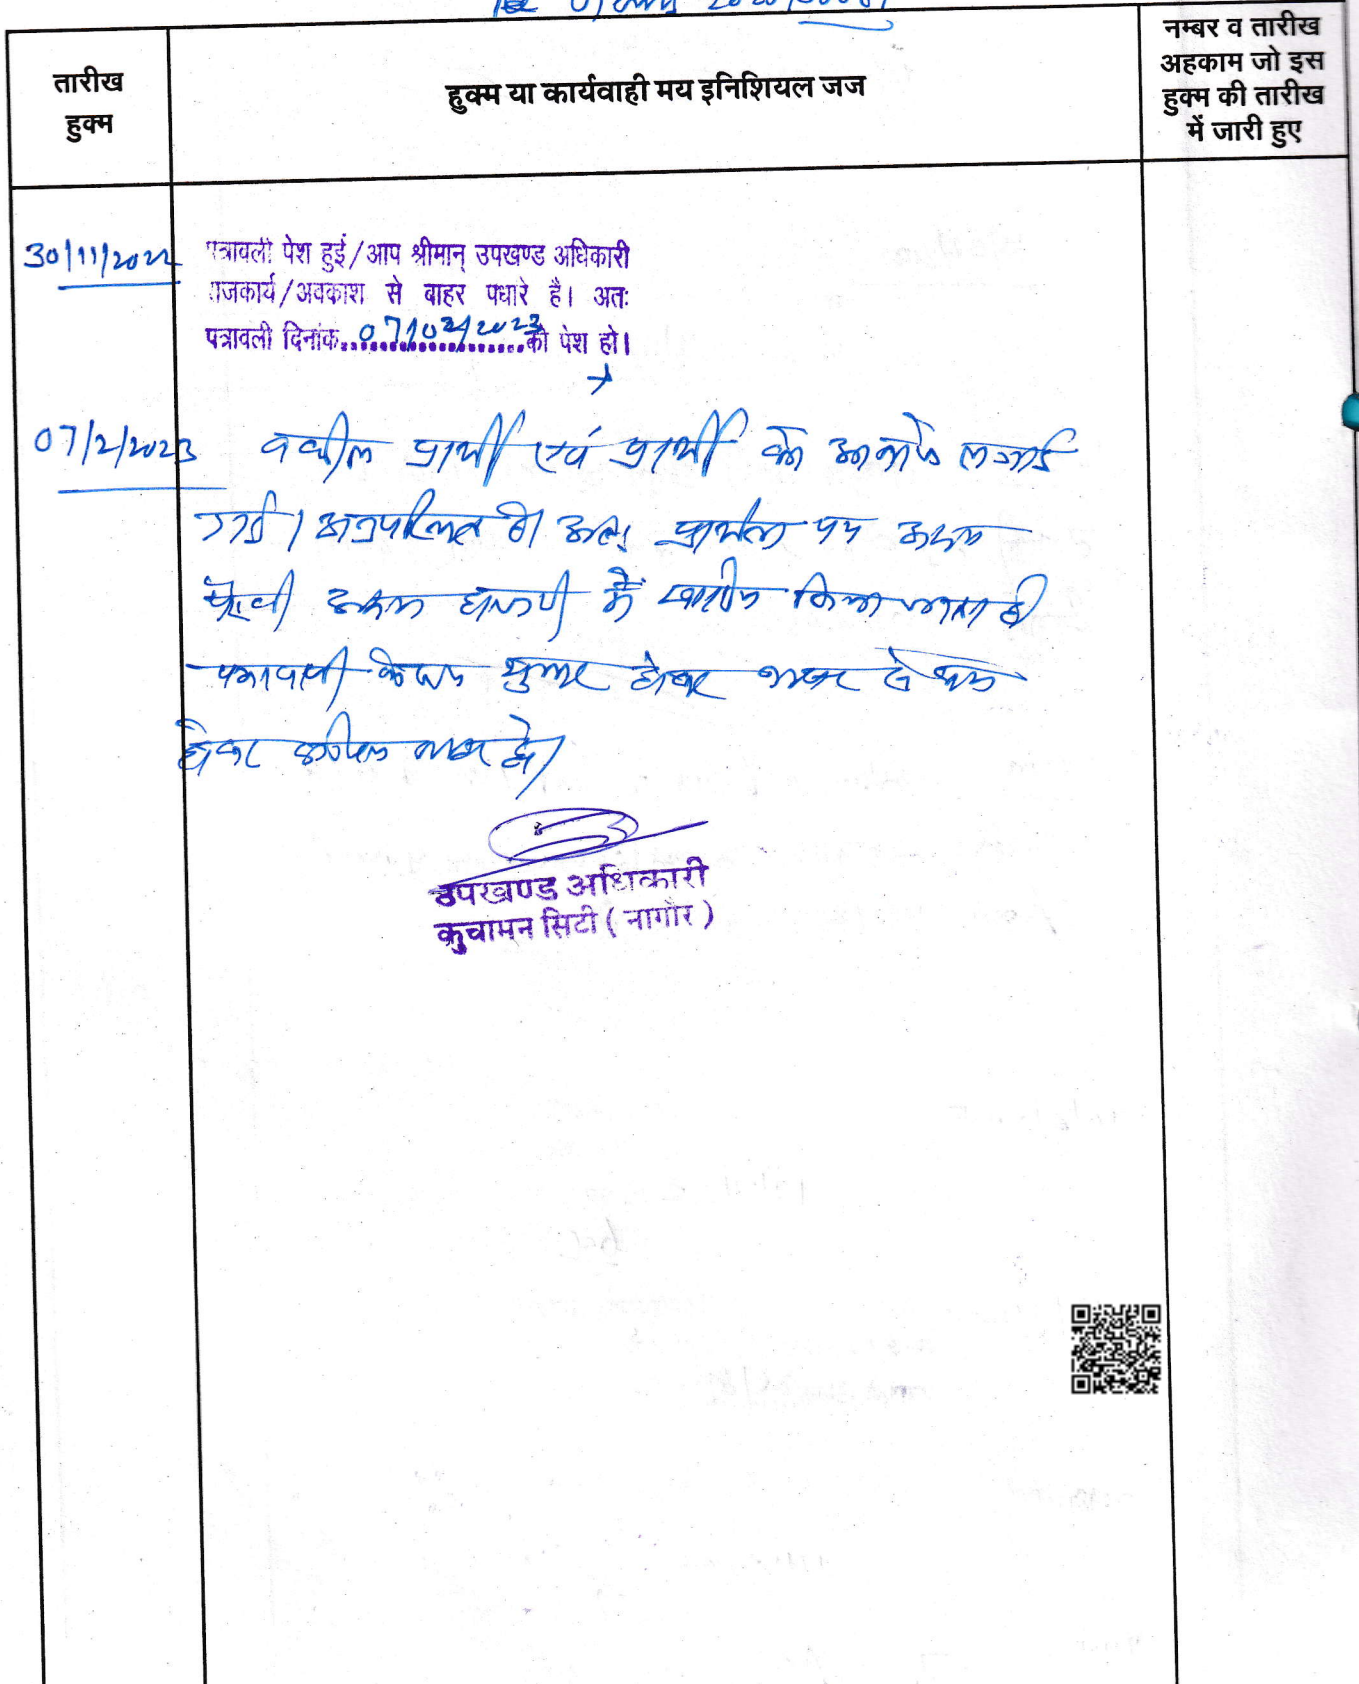 तारीख
हुक्म
हुक्म या कार्यवाही मय इनिशियल जज
नम्बर व तारीख
अहकाम जो इस
हुक्म की तारीख
में जारी हुए
30/11/2022
पत्रावली पेश हुई/आप श्रीमान् उपखण्ड अधिकारी
राजकार्य/अवकाश से बाहर पधारे है। अतः
पत्रावली दिनांक..07/02/2023..को पेश हो।
07/2/2023 वकील प्रार्थी एवं प्रार्थी को आवाजे लगाई
गई। अनुपस्थित है। अतः प्रार्थना पत्र अदम
पैरवी अदम हाजरी में खारीज किया जाता है
पत्रावली फैसल शुमार होकर नम्बर से कम
होकर दाखिल दफ्तर हो।
उपखण्ड अधिकारी
कुचामन सिटी (नागौर)